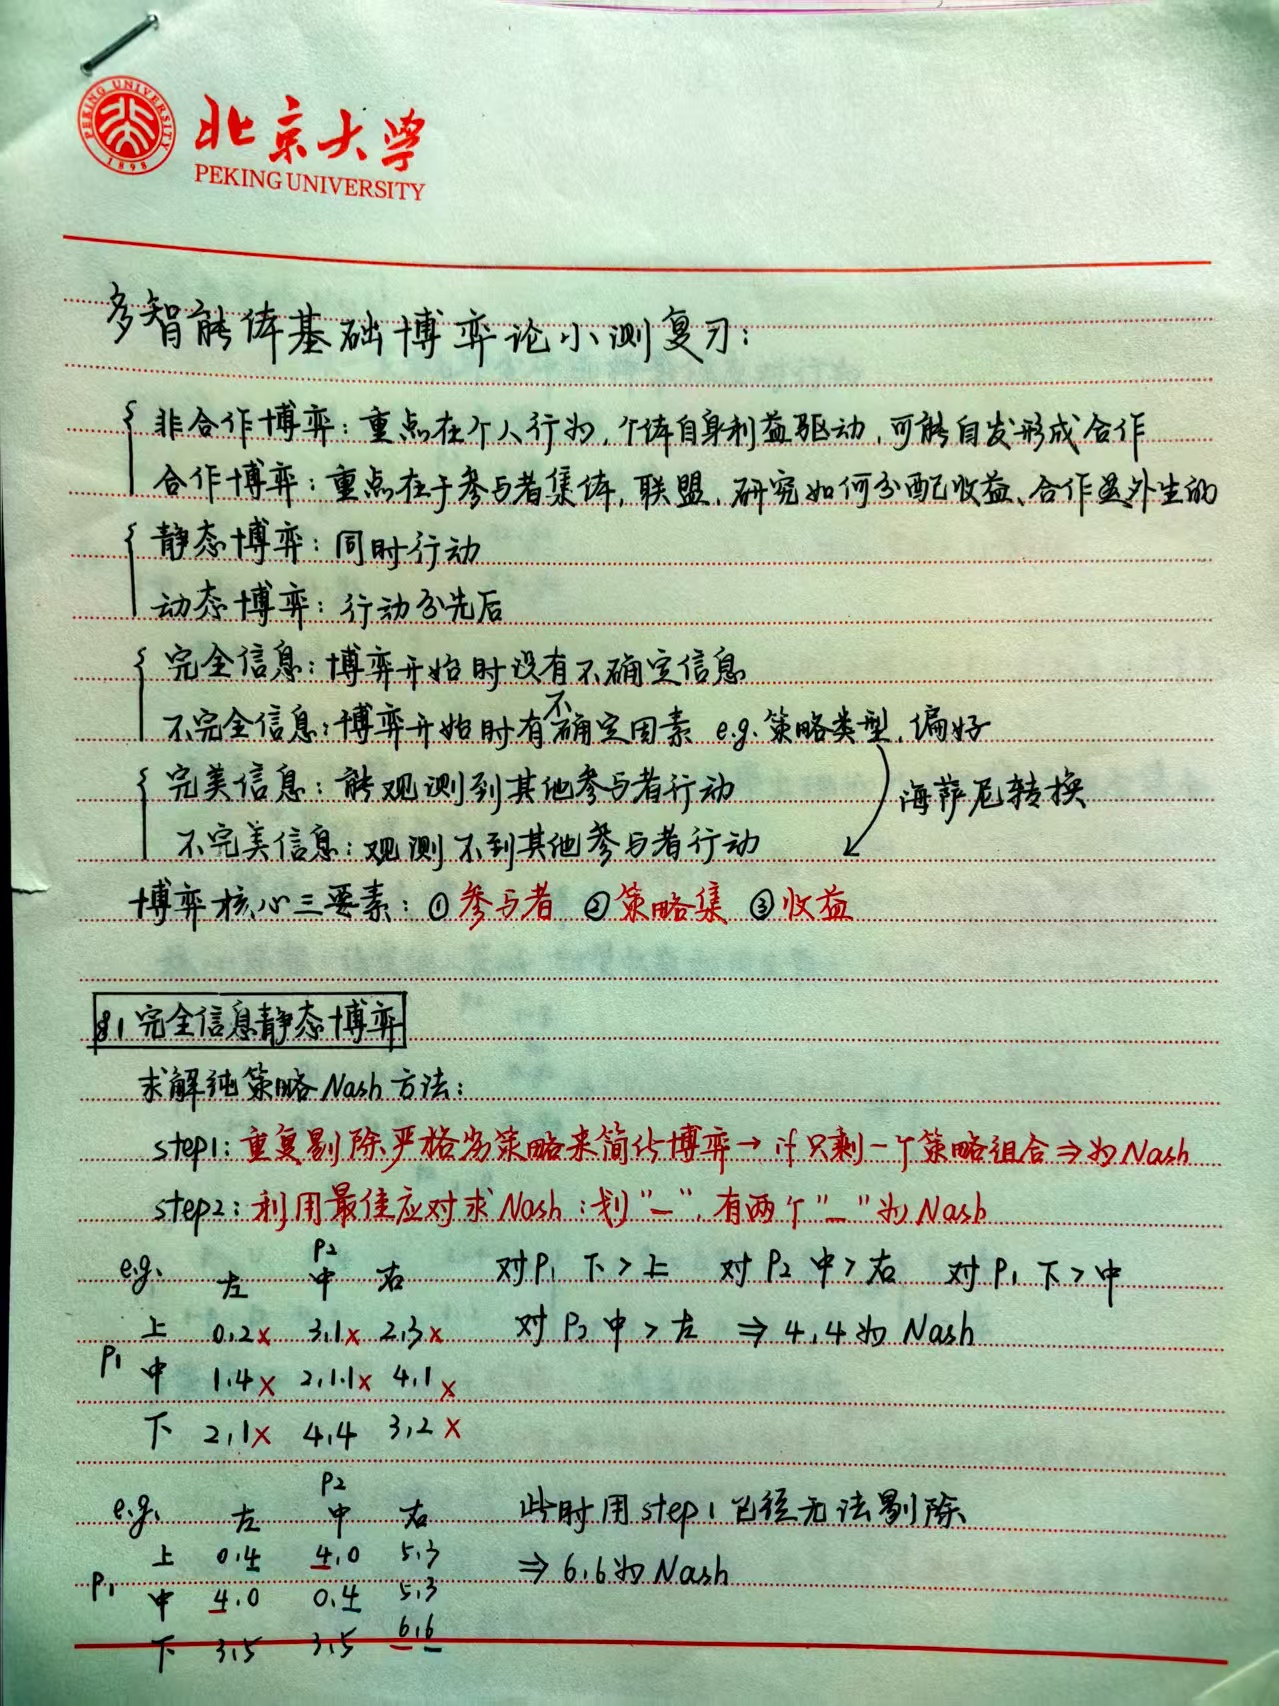 北京大学
PEKING UNIVERSITY
PEKING UNIVERSITY
1898
多智能体基础博弈论小测复习:
非合作博弈:重点在个人行为,个体自身利益驱动,可能自发形成合作
合作博弈:重点在于参与者集体,联盟,研究如何分配收益、合作是外生的
静态博弈:同时行动
动态博弈:行动分先后
完全信息:博弈开始时没有不确定信息
不完全信息:博弈开始时有不确定因素 e.g.策略类型,偏好
完美信息:能观测到其他参与者行动
海萨尼转换
不完美信息:观测不到其他参与者行动
博弈核心三要素:①参与者 ②策略集 ③收益
§1 完全信息静态博弈
求解纯策略Nash方法:
step1:重复剔除严格劣策略来简化博弈→if只剩一个策略组合⇒为Nash
step2:利用最佳应对求Nash:划“—”,有两个“—”为Nash
e.g. P2 对P1 下>上 对P2 中>右 对P1 下>中
左 中 右
上 0,2× 3,1× 2,3× 对P2 中>左 ⇒4,4为Nash
P1 中 1,4× 2,1.1× 4,1×
下 2,1× 4,4 3,2×
P2
e.g. 左 中 右 此时用step1已经无法剔除
上 0,4 4,0 5,3 ⇒6,6为Nash
P1 中 4,0 0,4 5,3
下 3,5 3,5 6,6